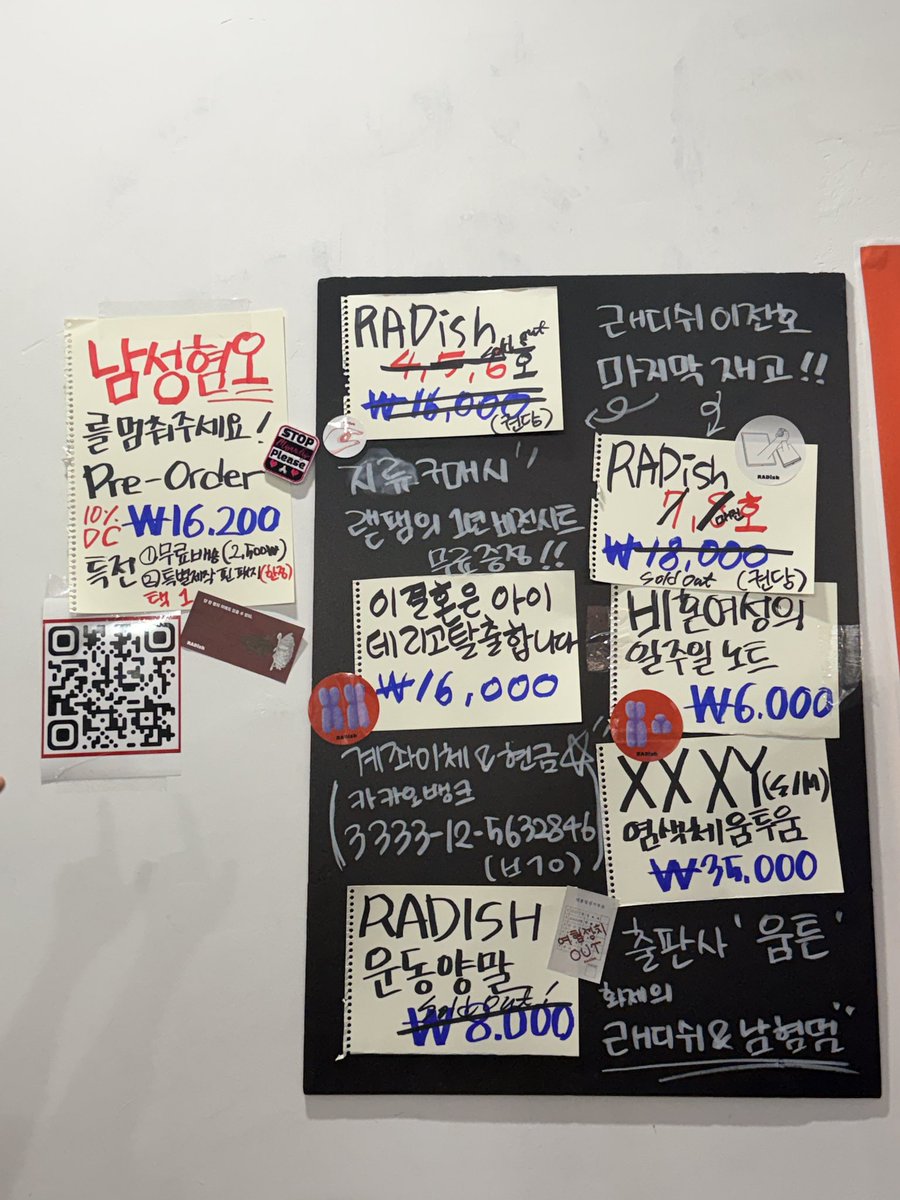 남성혐오
를 멈춰주세요!
Pre-Order
10% DC ₩16.200
특전 ①무료배송(2,500₩)
②특별제작 핀 배지(한정)
택 1
STOP
Please
RADish
RADish
4, 5, 6호
sold out
₩16,000
(권당)
래디쉬 이전호
마지막 재고!!
지류 구매시
랟땜의 1년 비전시트
무료증정!!
RADish
RADish
7, 8호
₩18,000
sold out (권당)
이 결혼은 아이
데리고 탈출합니다
₩16,000
RADish
비혼여성의
일주일 노트
₩6.000
RADish
계좌이체 & 현금☆
(카카오뱅크
3333-12-5632846
XX XY(S/M)
염색체 움투움
₩35,000
RADISH
운동양말
sold out!
₩8.000
OUT
출판사 '움튼'
화제의
래디쉬 & 남혐멈"